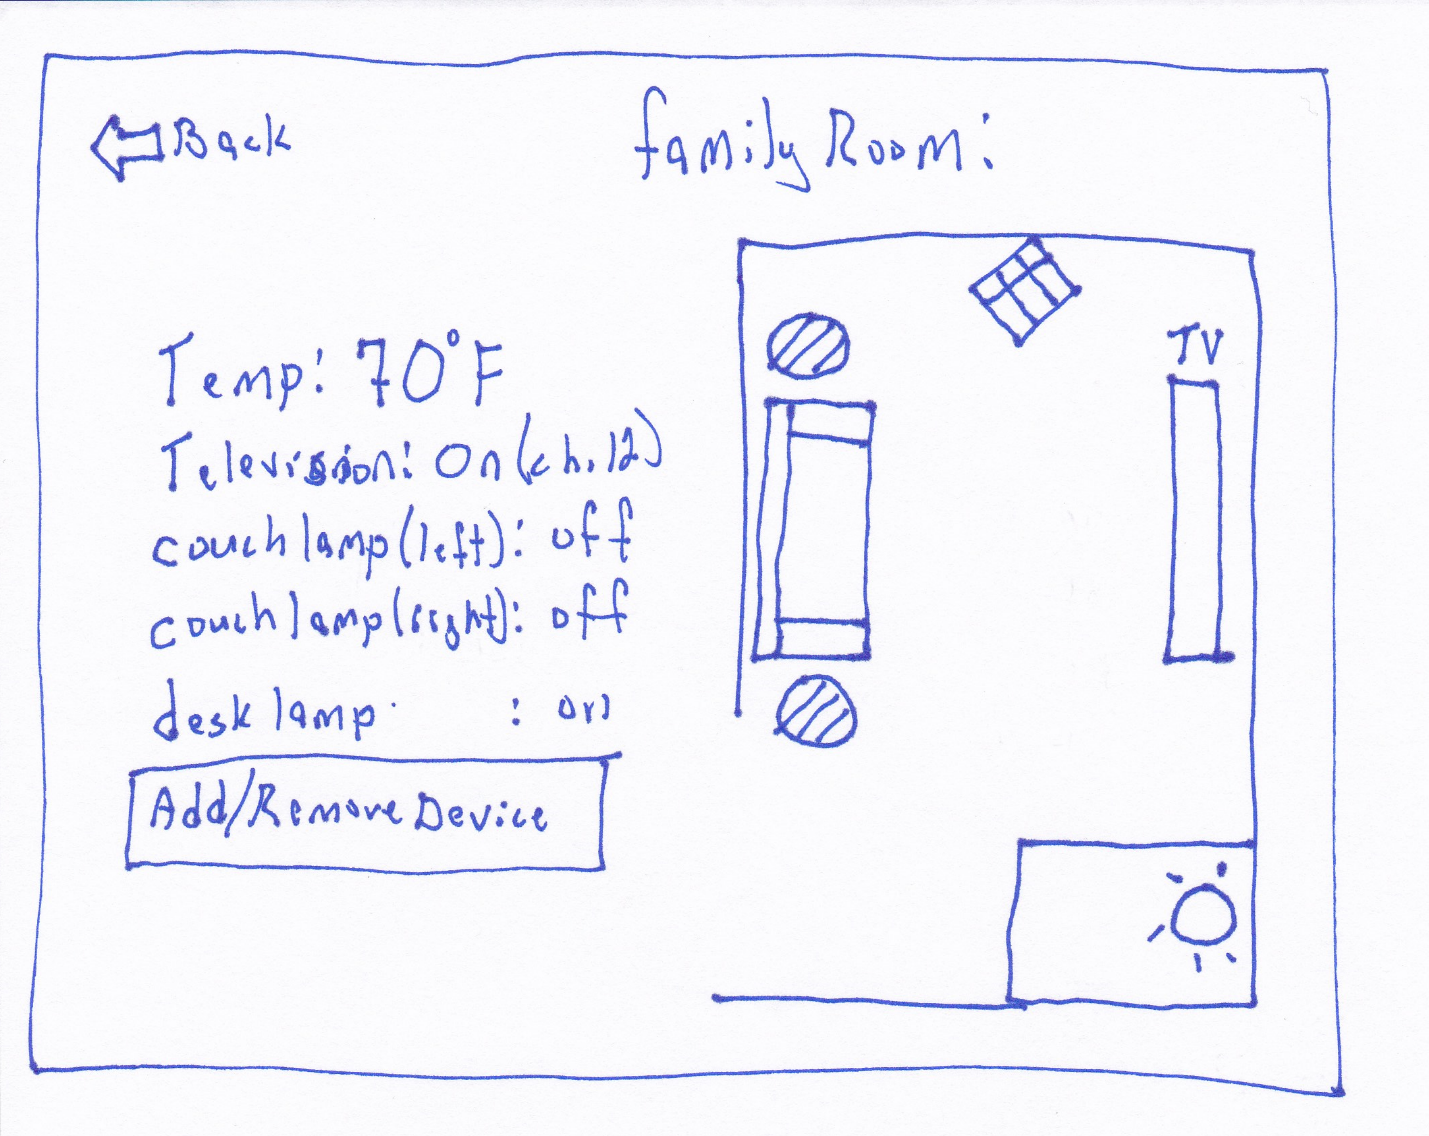 Back
family Room:
Temp: 70°F
Television: On (ch. 12)
couch lamp (left): off
couch lamp (right): off
desk lamp : on
Add/Remove Device
TV